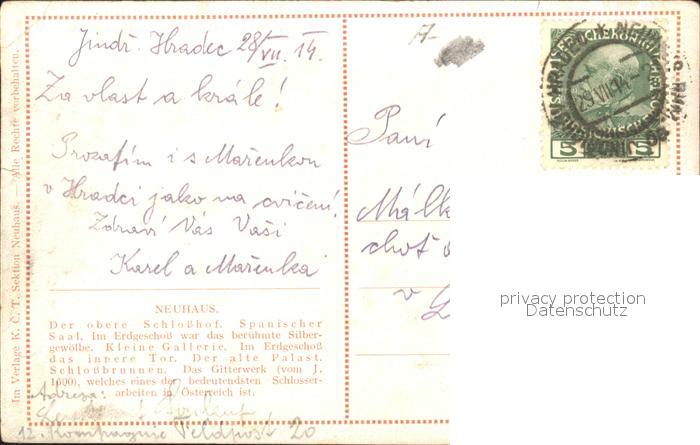 Jindř. Hradec 28/VII. 14.
Za vlast a krále!
Prozatím i s Mařenkou
v Hradci jako na cvičení.
Zdraví Vás Vaši
Karel a Mařenka
NEUHAUS.
Der obere Schloßhof. Spanischer
Saal. Im Erdgeschoß war das berühmte Silber-
gewölbe. Kleine Gallerie. Im Erdgeschoß
das innere Tor. Der alte Palast.
Schloßbrunnen. Das Gitterwerk (vom J.
1600), welches eines der bedeutendsten Schlosser-
arbeiten in Österreich ist.
Adresa:
12. Kompagnie Feldpost 20
Im Verlage K. Č. T. Sektion Neuhaus. — Alle Rechte vorbehalten.
Paní
choť
v
5 5
29 VII 14
privacy protection
Datenschutz